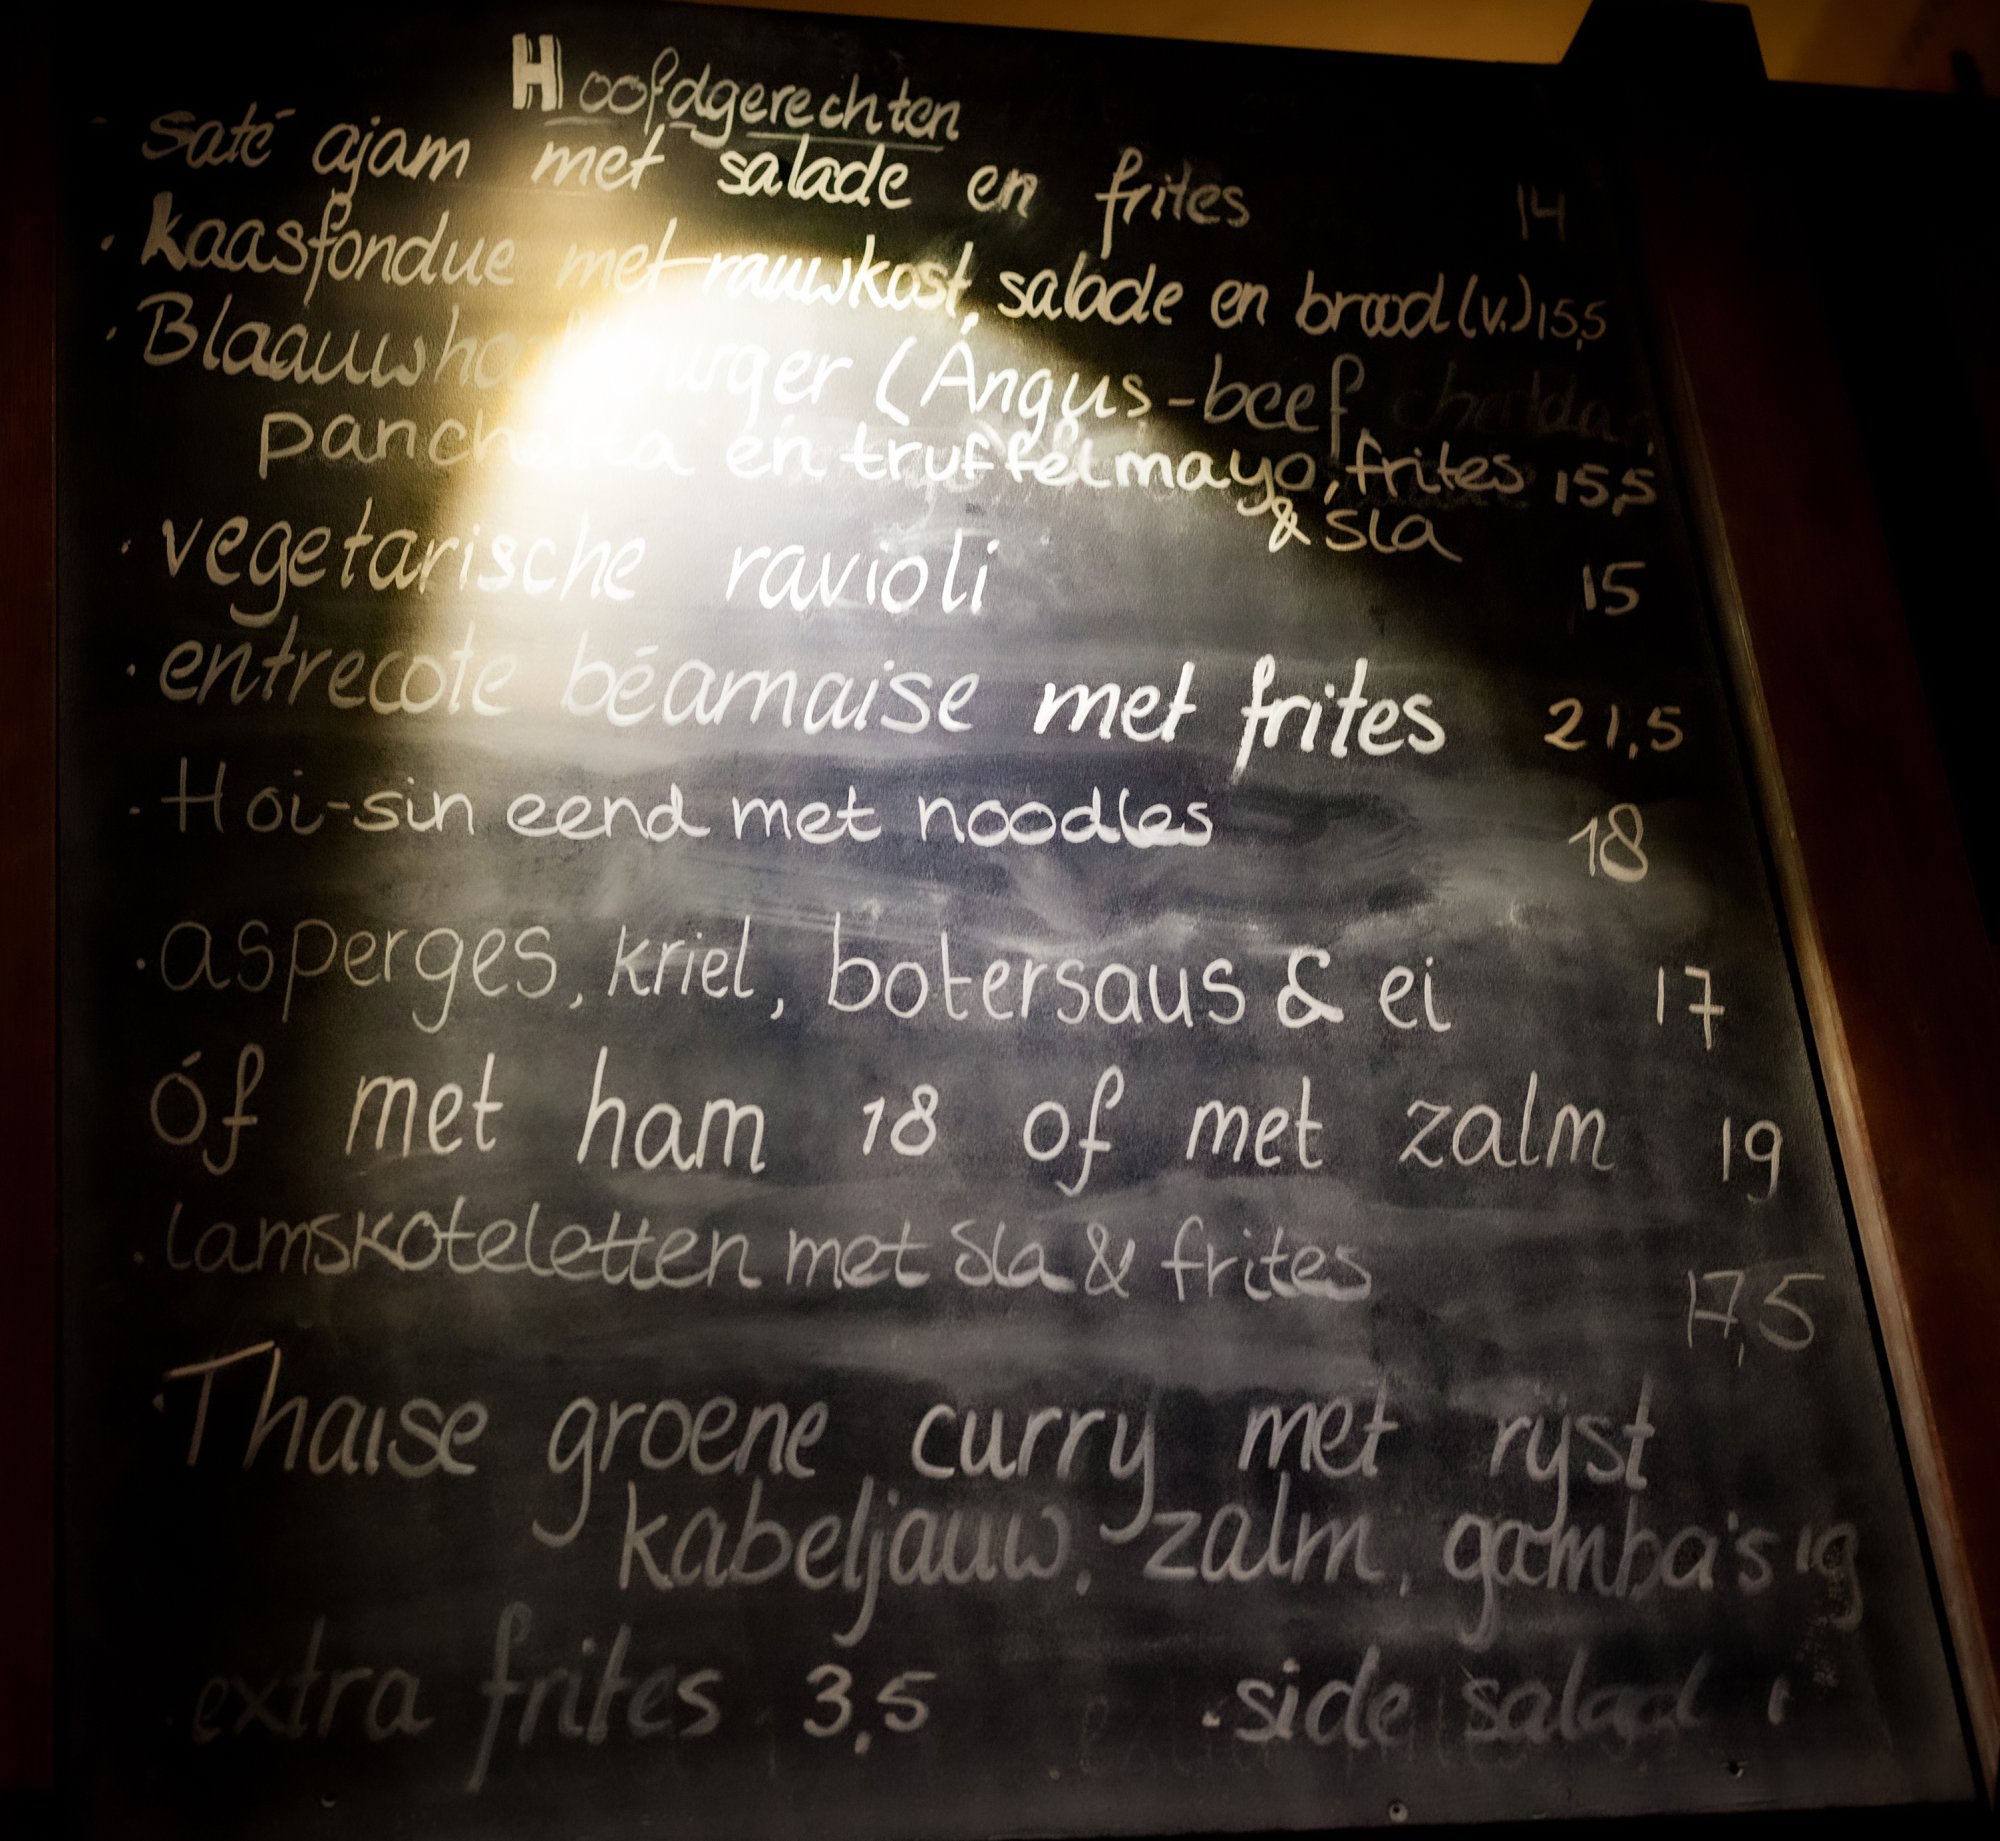 Hoofdgerechten
saté ajam met salade en frites 14
· kaasfondue met rauwkost, salade en brood (v.) 15,5
· burger (Angus-beef, cheddar,
pancetta en truffelmayo, frites 15,5
& sla
· vegetarische ravioli 15
· entrecote béarnaise met frites 21,5
· Hoi-sin eend met noodles 18
· asperges, kriel, botersaus & ei 17
óf met ham 18 of met zalm 19
· lamskoteletten met sla & frites 17,5
· Thaise groene curry met rijst
kabeljauw, zalm, gamba's 19
extra frites 3,5 · side salad